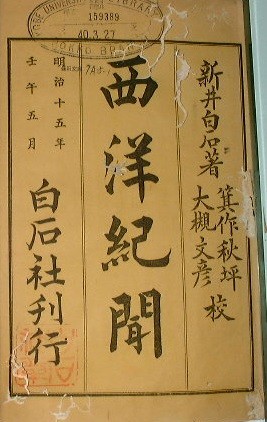 159389
40.3.27
新井白石著
箕作秋坪
大槻文彦 校
西洋紀聞
明治十五年
壬午五月
白石社刊行